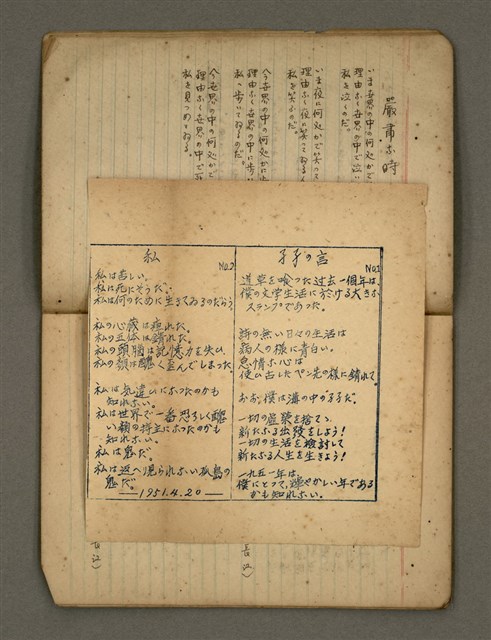 嚴肅な時
いま世界の中の何処かで
理由なく世界の中で泣い
私を泣くのだ。
いま夜に何処かで笑って
理由なく夜に笑ってゐる人
私を笑ふのだ。
今世界の中の何処かに歩
理由なく世界の中に歩い
私へ歩いてゐるのだ。
今世界の中の何処かで
理由なく世界の中で死
私を見つめてゐる。
孑孑の言
No.1
道草を喰った過去一個年は、
僕の文学生活に於ける大きな
スランプであった。
詩の無い日々の生活は
病人の様に青白い。
怠惰な心は
使ひ古したペン先の様に錆れて
おお、僕は溝の中の孑孑だ。
一切の虚榮を捨てゝ
新たなる出發をしよう!
一切の生活を検討して
新たなる人生を生きよう!
一九五一年は、
僕にとって、輝やかしい年である
かも知れない。
私
No.2
私は苦しい。
私は死にそうだ。
私は何のために生きてゐるのだらう
私の心臓は疲れた。
私の五体は錆れた。
私の頭脳は記憶力を失ひ、
私の顔は醜く歪んでしまった。
私は気違ひになったのかも
知れない。
私は世界で一番恐ろしく醜
い顔の持主になったのかも
知れない。
私は鬼だ。
私は返へり見られない孤島の
鬼だ。
—1951.4.20—
長江)